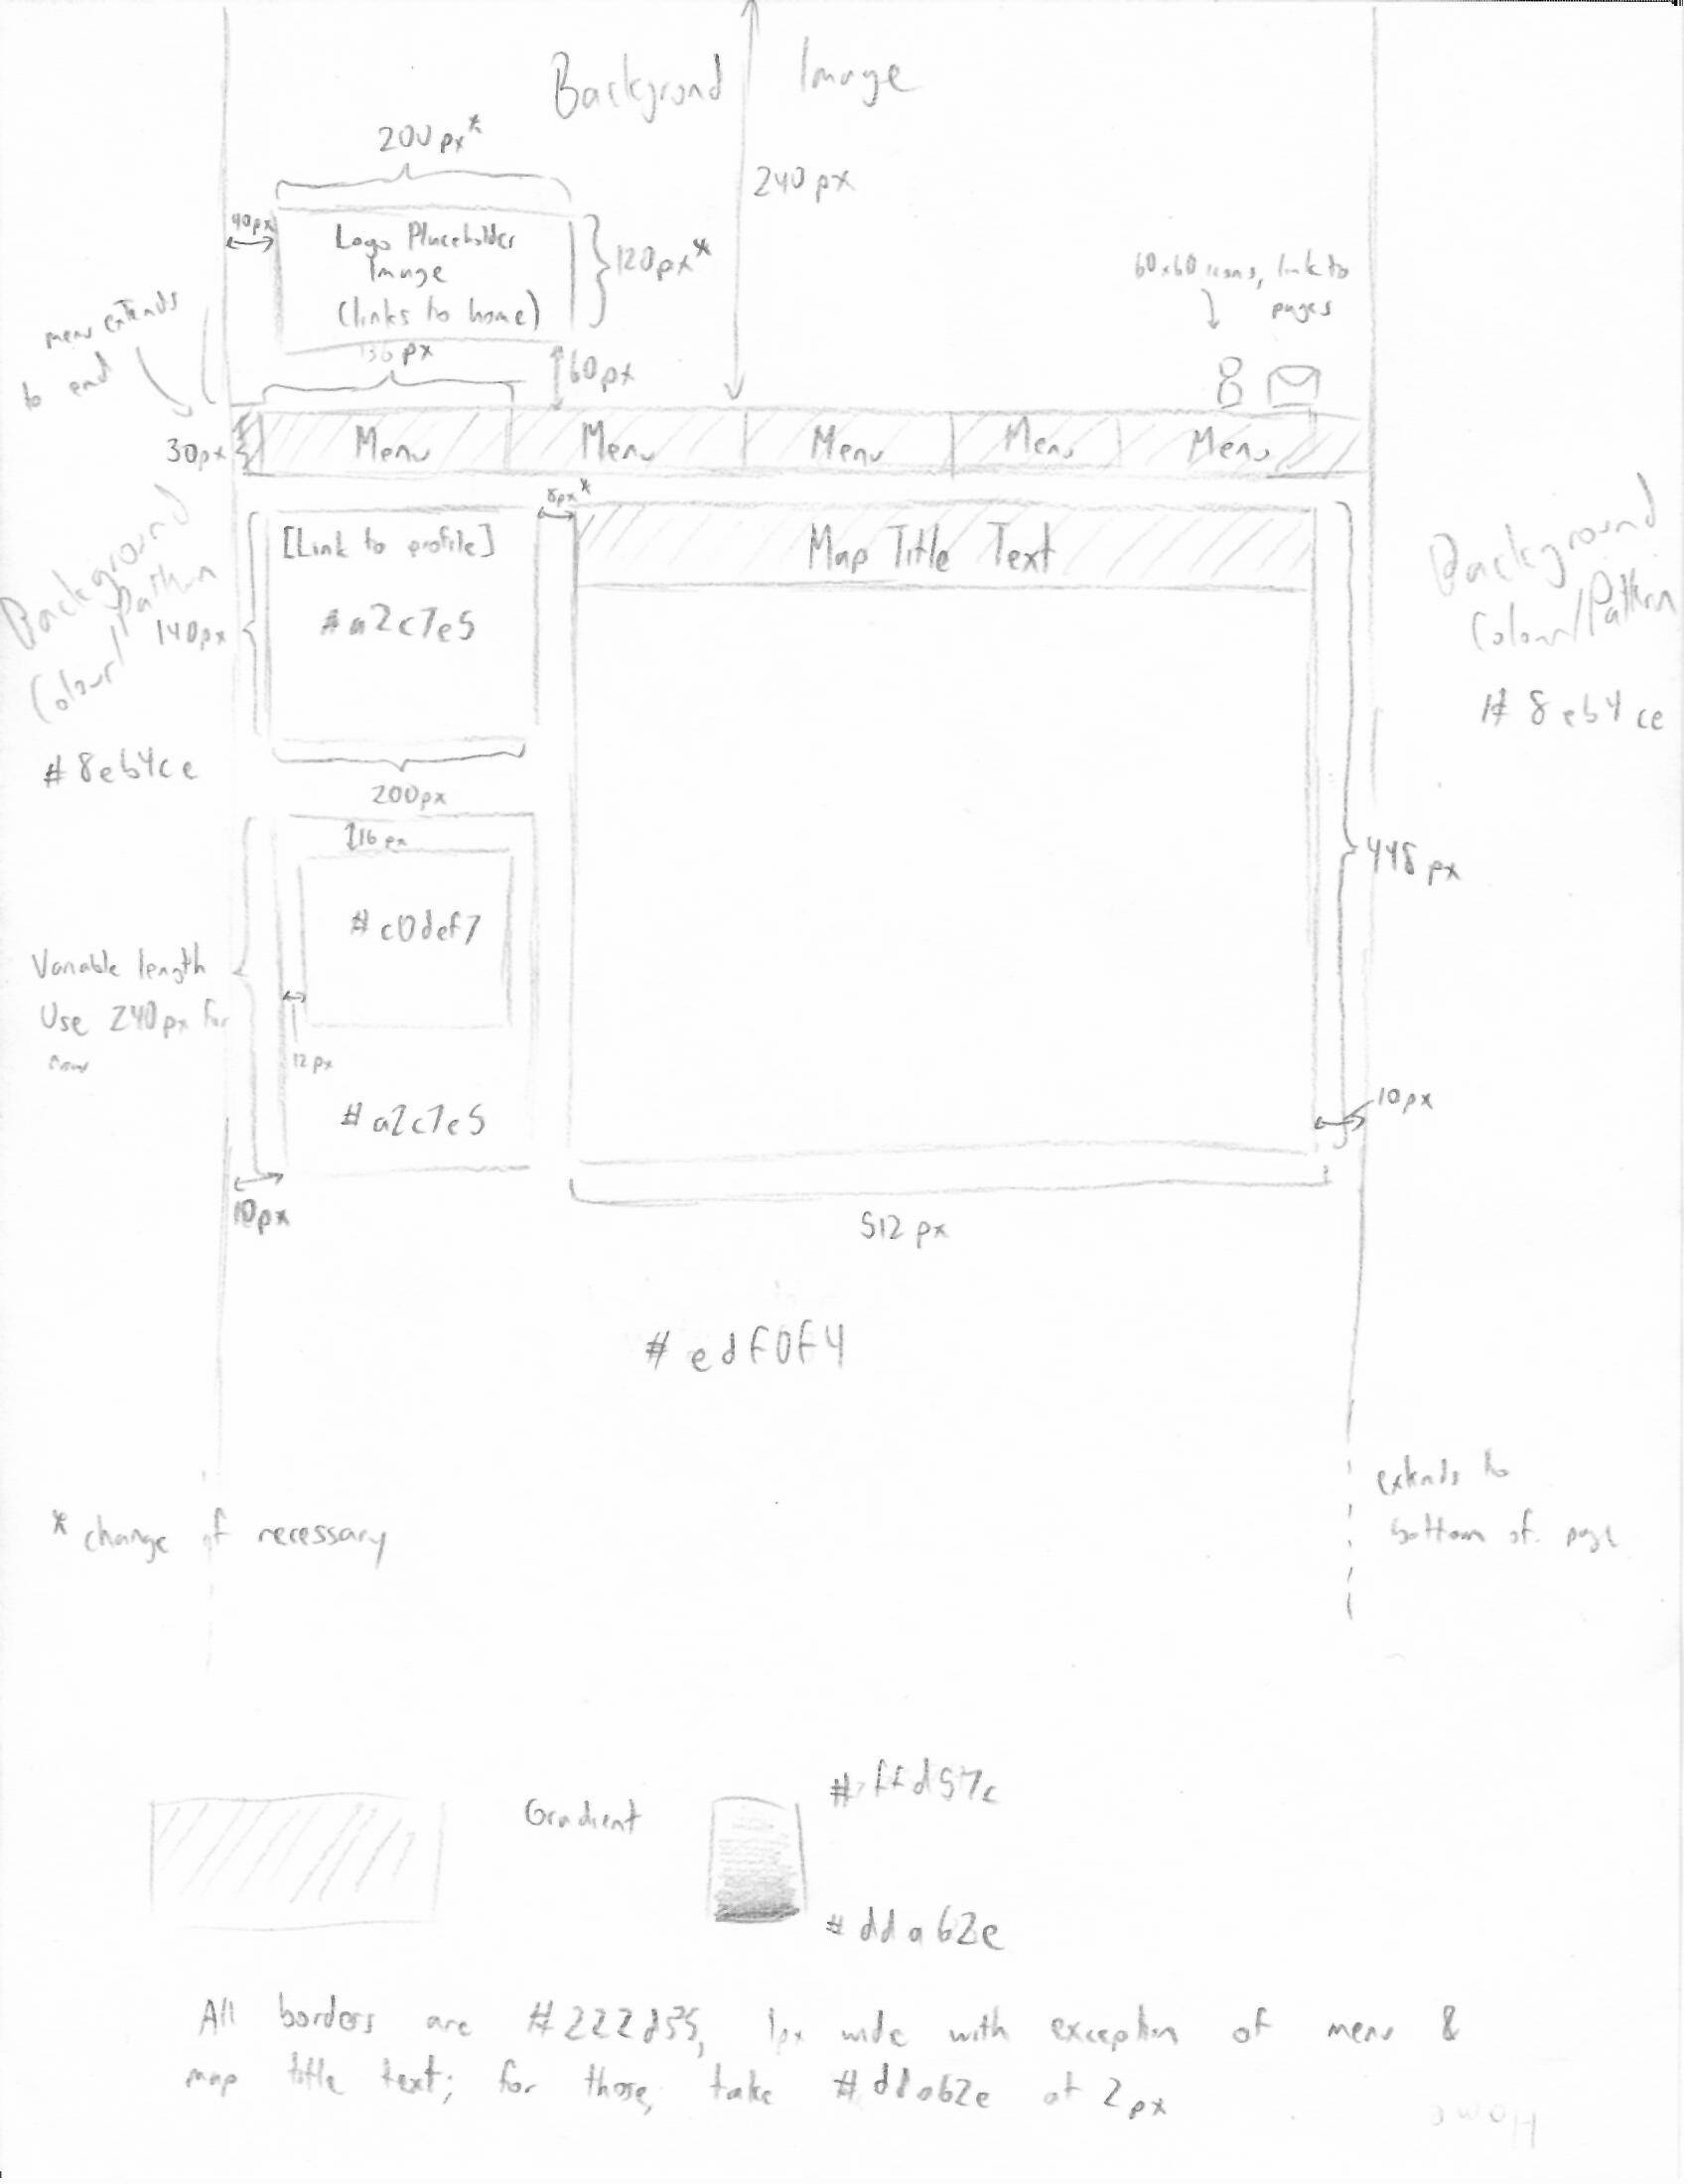 Backgrond Image
200px*
240px
40px
Logo Placeholder
Image
(links to home)
120px*
60x60 icons, link to
pages
menu extends
to end
136 px
60px
30px
Menu Menu Menu Menu Menu
8px*
[Link to profile]
Map Title Text
#a2c7e5
140px
Background
Colour/Pattern
#8eb4ce
Background
Colour/Pattern
#8eb4ce
200px
16px
#c0def7
448px
Variable length
Use 240px for
now
12px
#a2c7e5
10px
10px
512px
#edf0f4
* change if necessary
extends to
bottom of page
Gradient
#ffd57c
#dda62e
All borders are #222d35, 1px wide with exception of menu &
map title text; for those, take #dda62e at 2px